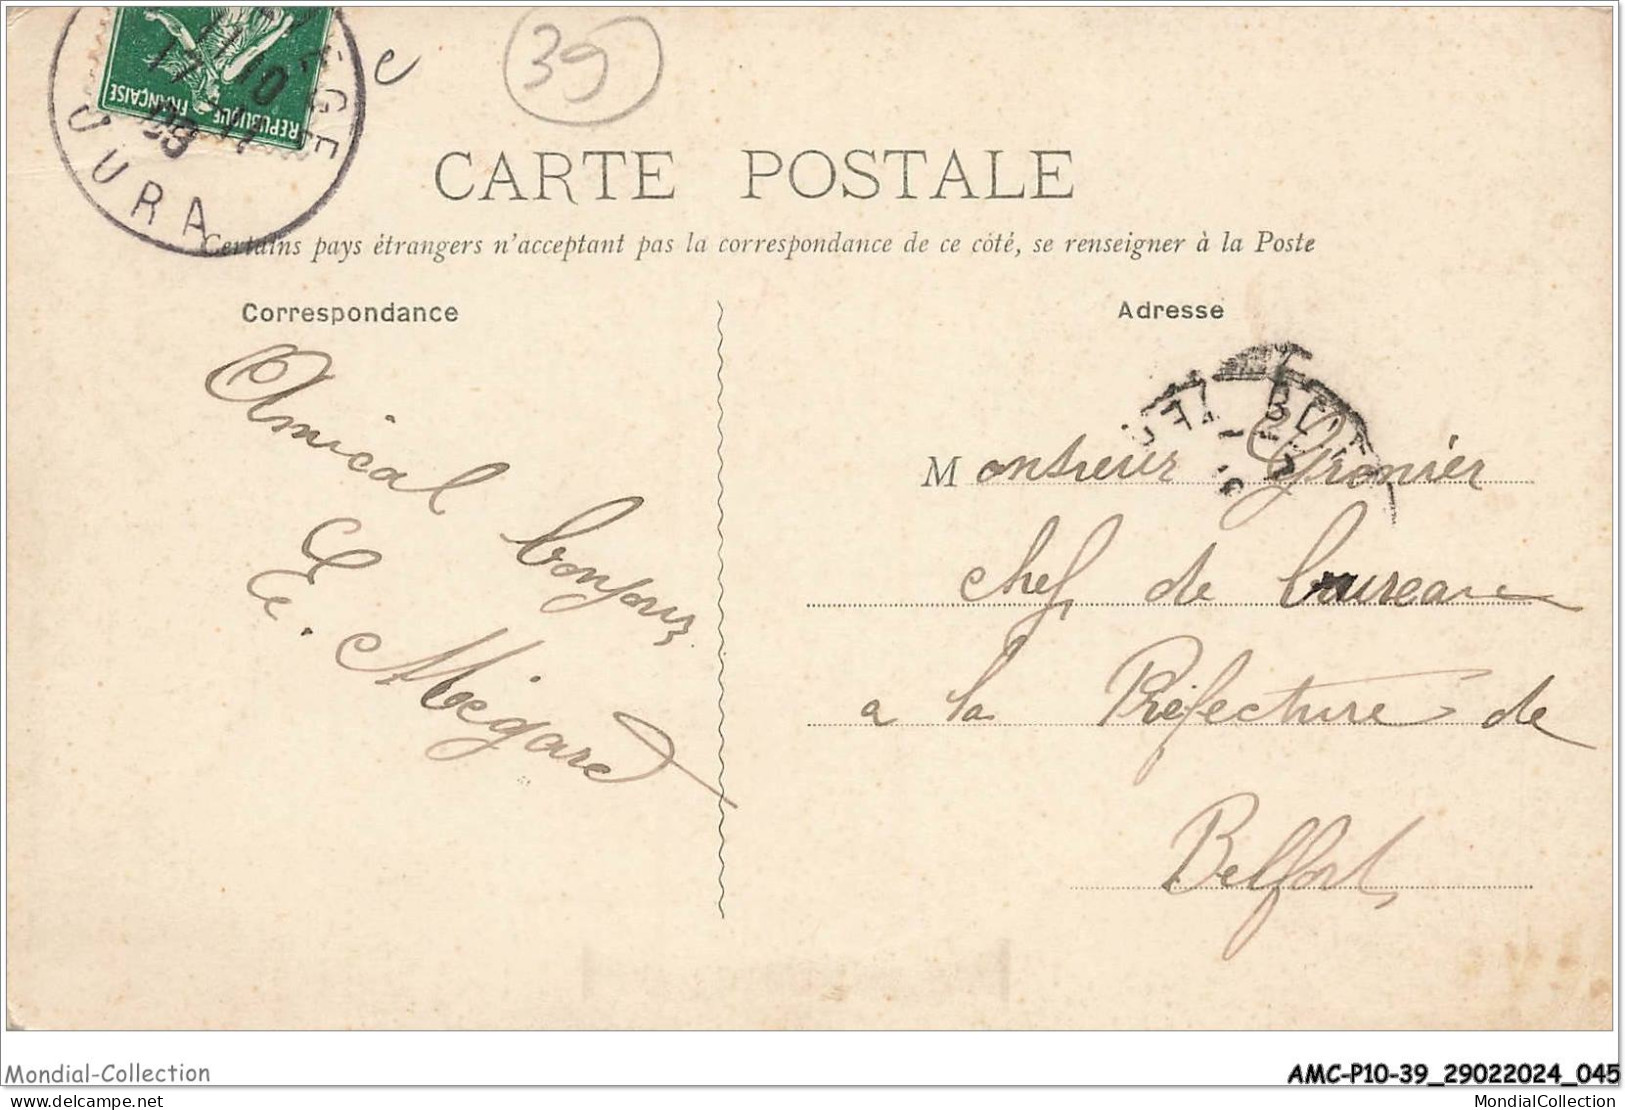 REPUBLIQUE FRANÇAISE
JURA
39
CARTE POSTALE
Certains pays étrangers n'acceptant pas la correspondance de ce côté, se renseigner à la Poste
Correspondance
Amical bonjour
E. Mégard
Adresse
Monsieur Gronier
chef de bureau
a la Préfecture de
Belfort
Mondial-Collection
AMC-P10-39_29022024_045
delcampe.net
MondialCollection